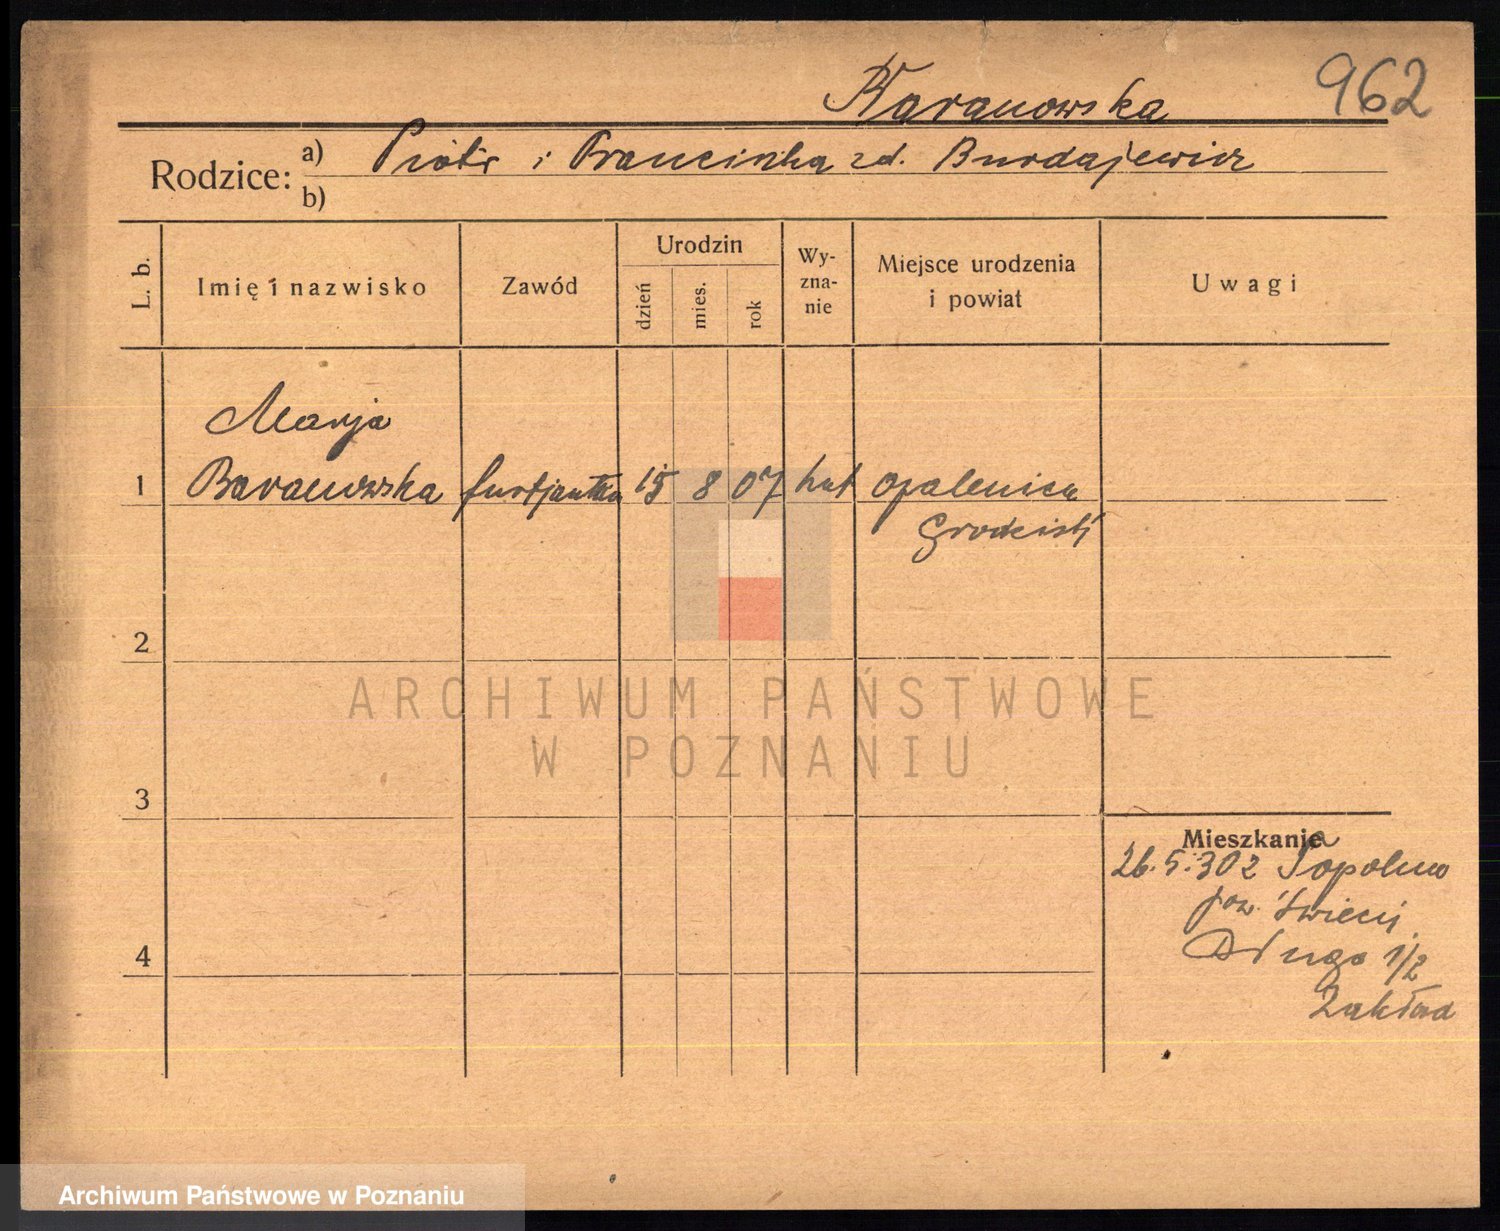 Baranowska 962
Rodzice: a) Piotr i Franciszka zd. Burdajewicz
b)
L. b. Imię i nazwisko Zawód Urodzin dzień mies. rok Wy-zna-nie Miejsce urodzenia i powiat Uwagi
Marja
1 Baranowska 15 8 07 kat Opalenica
Grodzisk
2
ARCHIWUM PAŃSTWOWE
W POZNANIU
3
Mieszkanie
26.5.30 z Topolna
pow. Świecij
Długa 1/2
4
Zakład
Archiwum Państwowe w Poznaniu